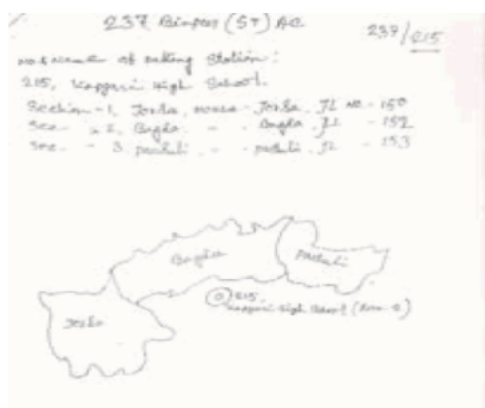 237 Binpur (ST) AC
237/215
No & Name of Polling Station:
215, Kappari High School.
Section - 1, Jorka, mouza - Jorka, JL No - 150
Sec - 2, Bagda - - Bagda, JL - 152
Sec - 3 Paduli - - Paduli, JL - 153
Bagda
Paduli
Jorka
215,
Kappari High School (Room-2)